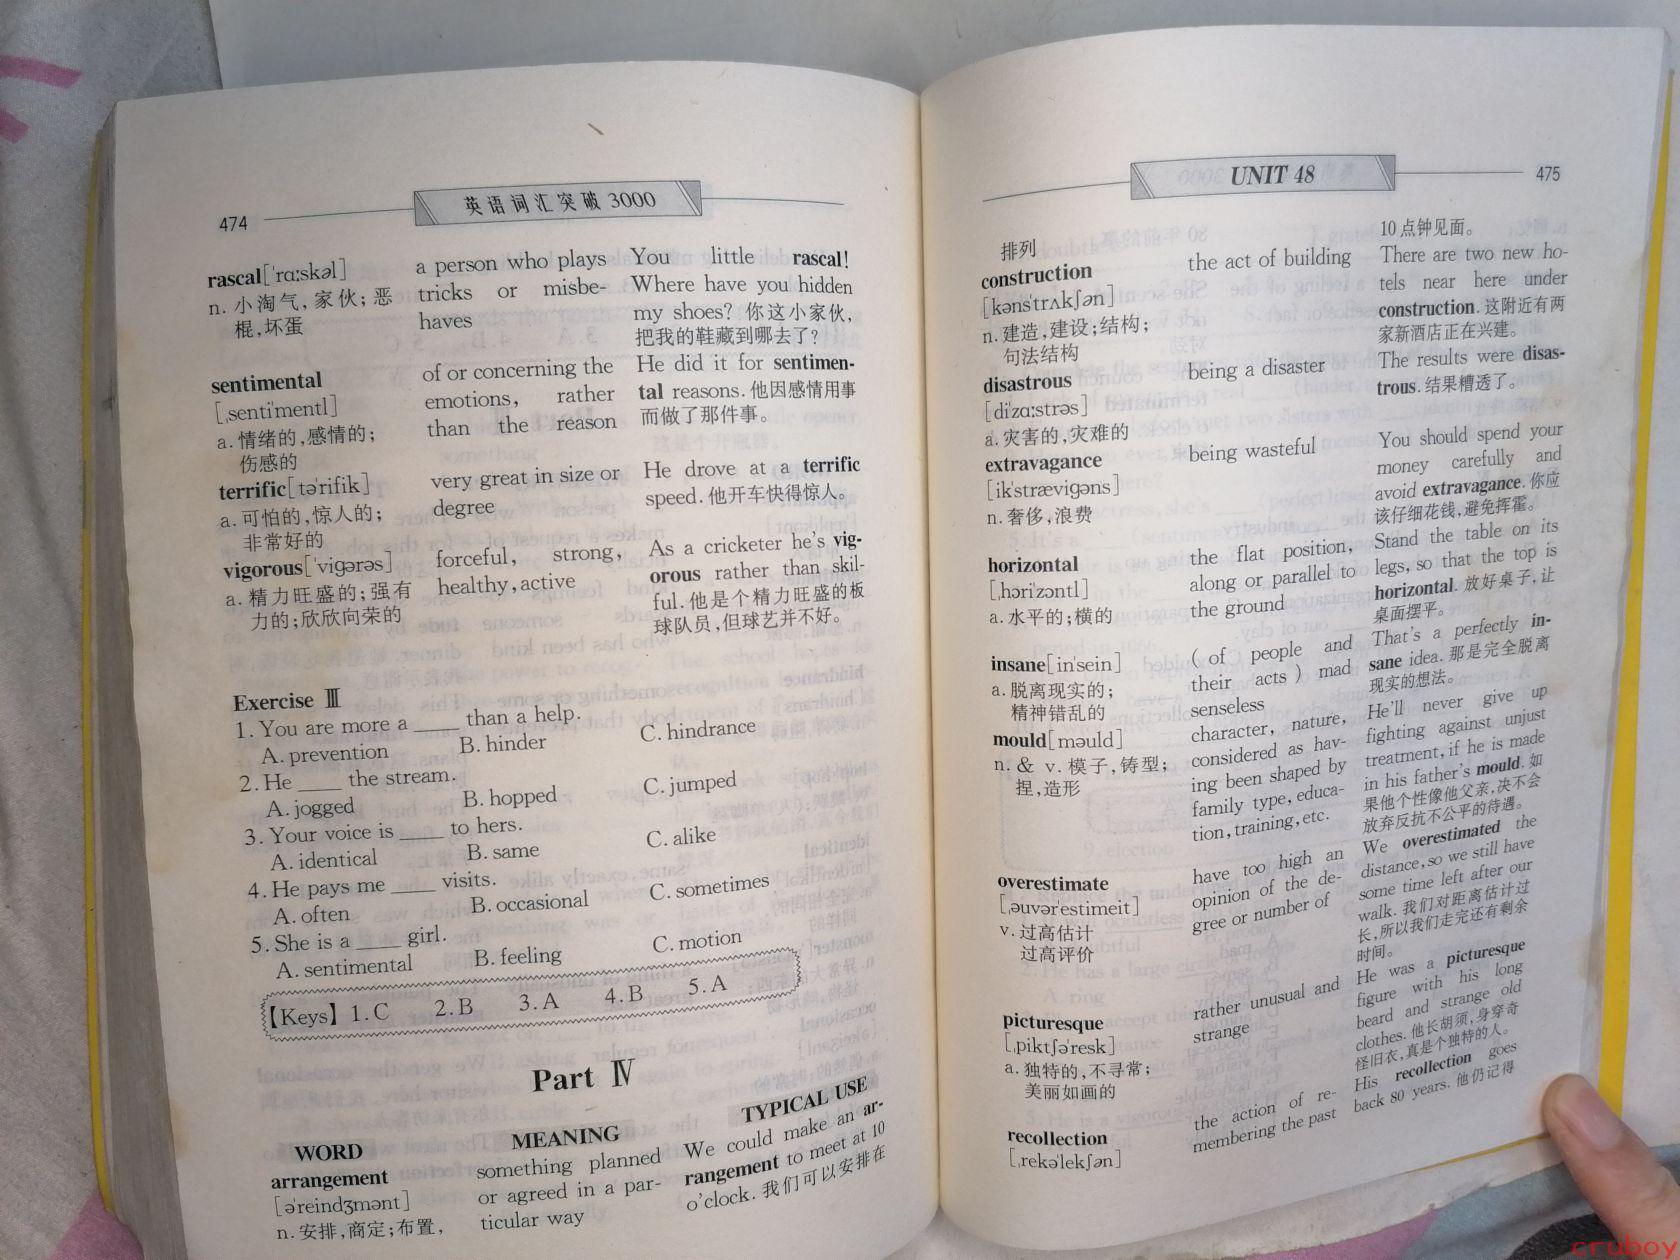 474
英语词汇突破 3000
rascal['rɑ:skəl]
n. 小淘气,家伙;恶
棍,坏蛋
a person who plays
tricks or misbe-
haves
You little rascal!
Where have you hidden
my shoes? 你这小家伙,
把我的鞋藏到哪去了?
sentimental
[ˌsenti'mentl]
a. 情绪的,感情的;
伤感的
of or concerning the
emotions, rather
than the reason
He did it for sentimen-
tal reasons. 他因感情用事
而做了那件事。
terrific[tə'rifik]
a. 可怕的,惊人的;
非常好的
very great in size or
degree
He drove at a terrific
speed. 他开车快得惊人。
vigorous['vigərəs]
a. 精力旺盛的;强有
力的;欣欣向荣的
forceful, strong,
healthy,active
As a cricketer he's vig-
orous rather than skil-
ful. 他是个精力旺盛的板
球队员,但球艺并不好。
Exercise Ⅲ
1. You are more a ____ than a help.
A. prevention B. hinder C. hindrance
2. He ____ the stream.
A. jogged B. hopped C. jumped
3. Your voice is ____ to hers.
A. identical B. same C. alike
4. He pays me ____ visits.
A. often B. occasional C. sometimes
5. She is a ____ girl.
A. sentimental B. feeling C. motion
【Keys】 1. C 2. B 3. A 4. B 5. A
Part Ⅳ
WORD MEANING TYPICAL USE
arrangement
[ə'reindʒmənt]
n. 安排,商定;布置,
something planned
or agreed in a par-
ticular way
We could make an ar-
rangement to meet at 10
o'clock. 我们可以安排在
UNIT 48
475
排列
10点钟见面。
construction
[kəns'trʌkʃən]
n. 建造,建设;结构;
句法结构
the act of building
There are two new ho-
tels near here under
construction. 这附近有两
家新酒店正在兴建。
disastrous
[di'zɑ:strəs]
a. 灾害的,灾难的
being a disaster
The results were disas-
trous. 结果糟透了。
extravagance
[ik'strævigəns]
n. 奢侈,浪费
being wasteful
You should spend your
money carefully and
avoid extravagance. 你应
该仔细花钱,避免挥霍。
horizontal
[ˌhɔri'zɔntl]
a. 水平的;横的
the flat position,
along or parallel to
the ground
Stand the table on its
legs, so that the top is
horizontal. 放好桌子,让
桌面摆平。
insane[in'sein]
a. 脱离现实的;
精神错乱的
(of people and
their acts) mad
senseless
That's a perfectly in-
sane idea. 那是完全脱离
现实的想法。
mould[məuld]
n. & v. 模子,铸型;
捏,造形
character, nature,
considered as hav-
ing been shaped by
family type, educa-
tion, training, etc.
He'll never give up
fighting against unjust
treatment, if he is made
in his father's mould. 如
果他个性像他父亲,决不会
放弃反抗不公平的待遇。
overestimate
[ˌəuvər'estimeit]
v. 过高估计
过高评价
have too high an
opinion of the de-
gree or number of
We overestimated the
distance, so we still have
some time left after our
walk. 我们对距离估计过
长,所以我们走完还有剩余
时间。
picturesque
[ˌpiktʃə'resk]
a. 独特的,不寻常;
美丽如画的
rather unusual and
strange
He was a picturesque
figure with his long
beard and strange old
clothes. 他长胡须,身穿奇
怪旧衣,真是个独特的人。
recollection
[ˌrekə'lekʃən]
the action of re-
membering the past
His recollection goes
back 80 years. 他仍记得
cruboy